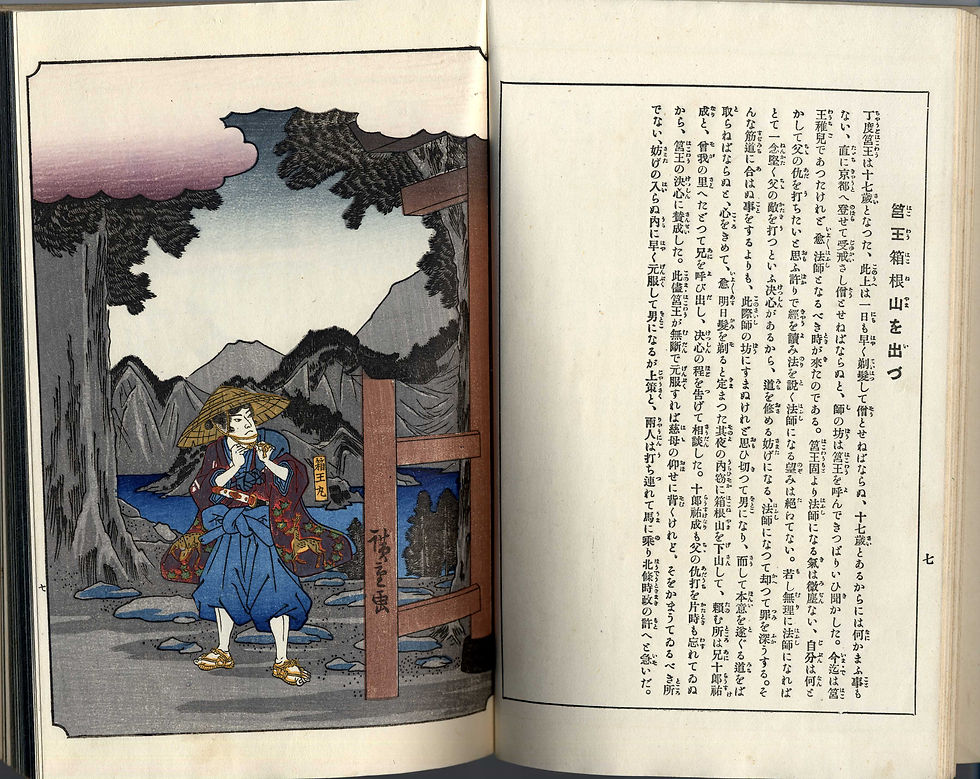 筥王箱根山を出づ
丁度筥王は十七歳となつた、此上は一日も早く剃髮して僧とせねばならぬ、十七歳とあるからには何かまふ事も
ない、直に京都へ登せて受戒さし僧とせねばならぬと、師の坊は筥王を呼んできつぱりいひ聞かした。今迄は筥
王稚兒であつたけれど愈法師となるべき時が來たのである。筥王固より法師になる氣は微塵ない、自分は何と
かして父の仇を打ちたいと思ふ許りで經を讀み法を說く法師になる望みは絕わてない。若し無理に法師になれば
とて一念堅く父の敵を打つといふ決心があるから、道を修める妨げになる、法師になつて却つて罪を深うする。そ
んな筋道に合はぬ事をするよりも、此際師の坊にすまぬけれど思ひ切つて男になり、而して本意を遂ぐる道をば
取らねばならぬと、心をきめて、愈明日髮を剃ると定まつた其夜の內窃に箱根山を下山して、賴む所は兄十郞祐
成と、曾我の里へたどつて兄を呼び出し、決心の程を告げて相談した。十郞祐成も父の仇打を片時も忘れてゐぬ
から、筥王の決心に賛成した。此儘筥王が無斷で元服すれば慈母の仰せに背くけれど、そをかまうてゐるべき所
でない、妨げの入らぬ內に早く元服して男になるが上策と、兩人は打ち連れて馬に乘り北條時政の許へと急いだ。
七
箱王丸
廣重畫
七